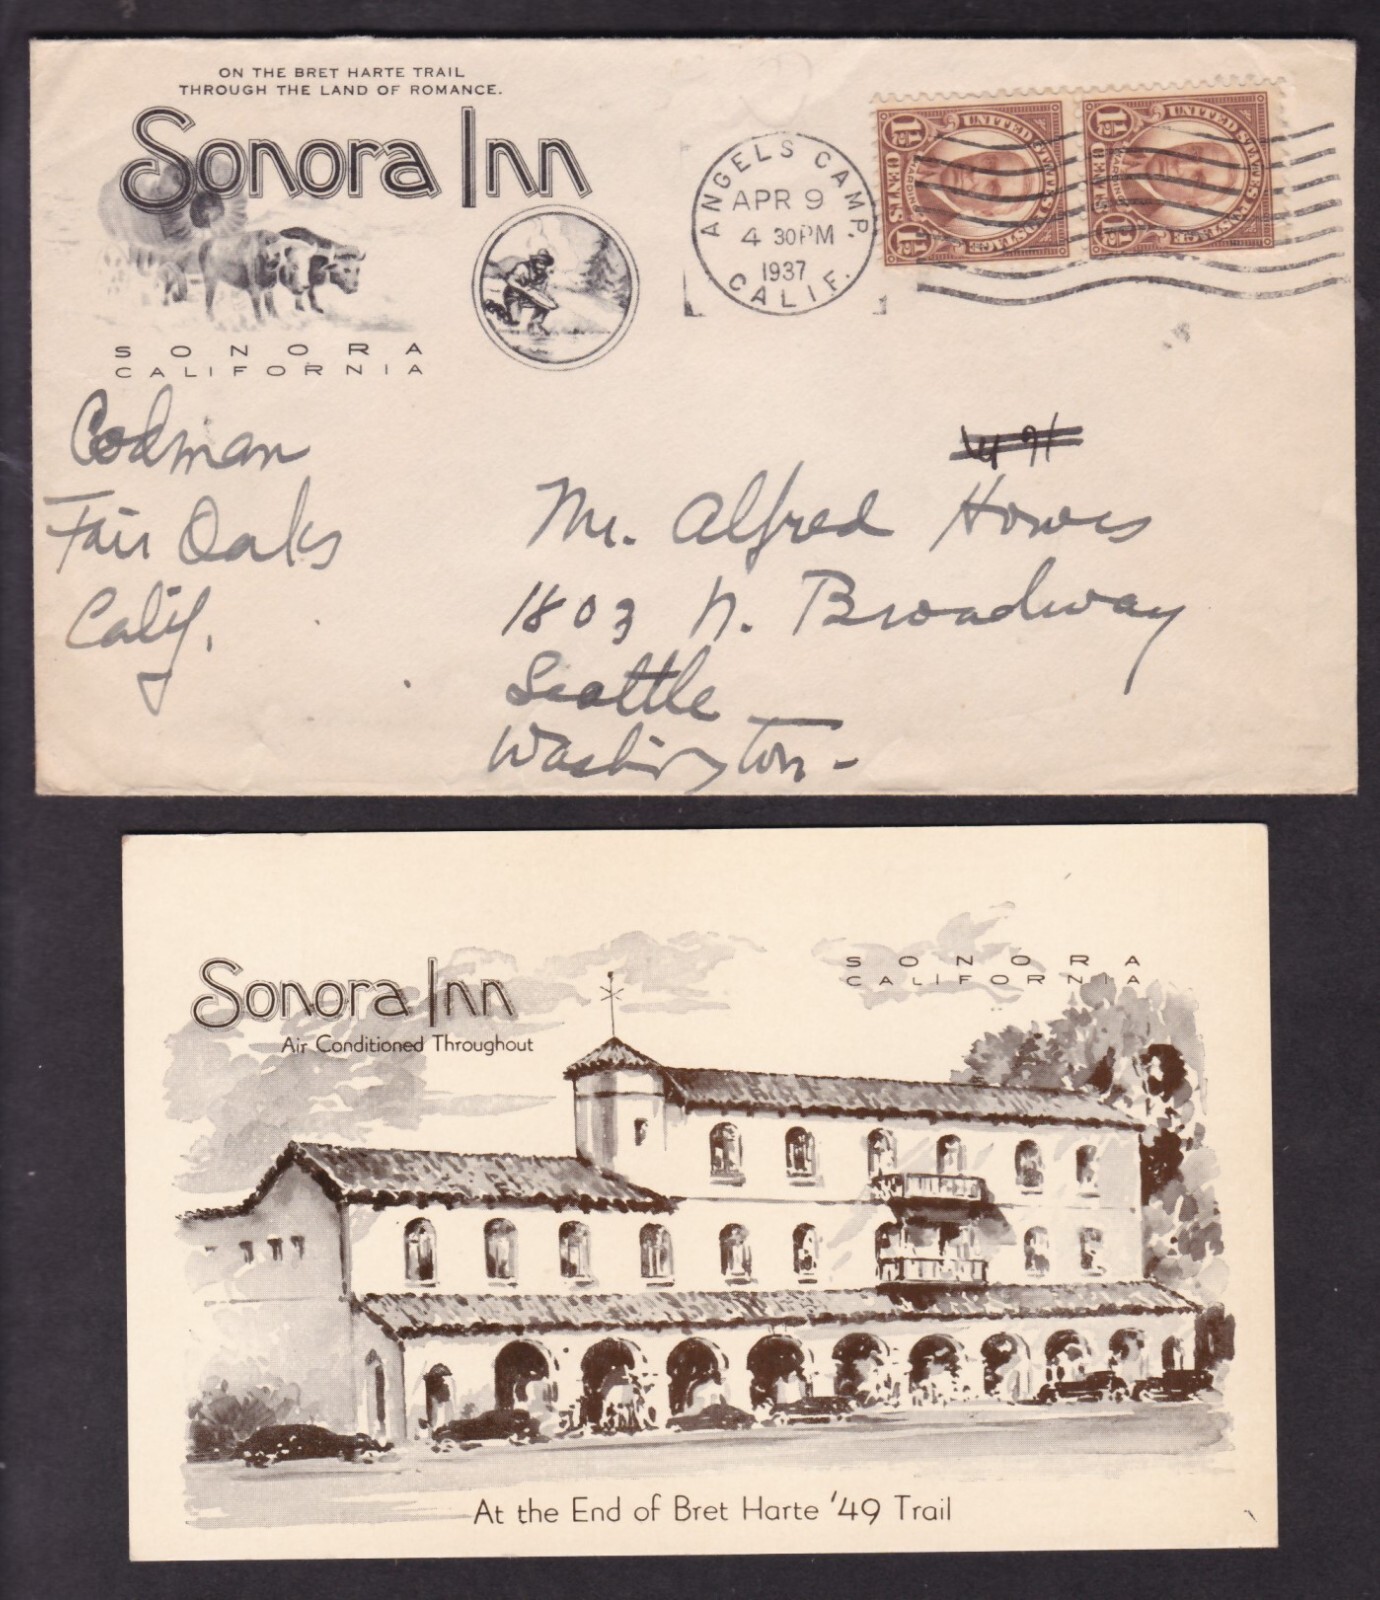 ON THE BRET HARTE TRAIL
THROUGH THE LAND OF ROMANCE.
Sonora Inn
SONORA
CALIFORNIA
ANGELS CAMP.
APR 9
4 30PM
1937
CALIF.
UNITED STATES POSTAGE
1½
1½
HARDING
UNITED STATES POSTAGE
1½
1½
HARDING
Codman
Fair Oaks
Calif.
Mr. Alfred Howes
1803 N. Broadway
Seattle
Washington -
Sonora Inn
Air Conditioned Throughout
SONORA
CALIFORNIA
At the End of Bret Harte '49 Trail